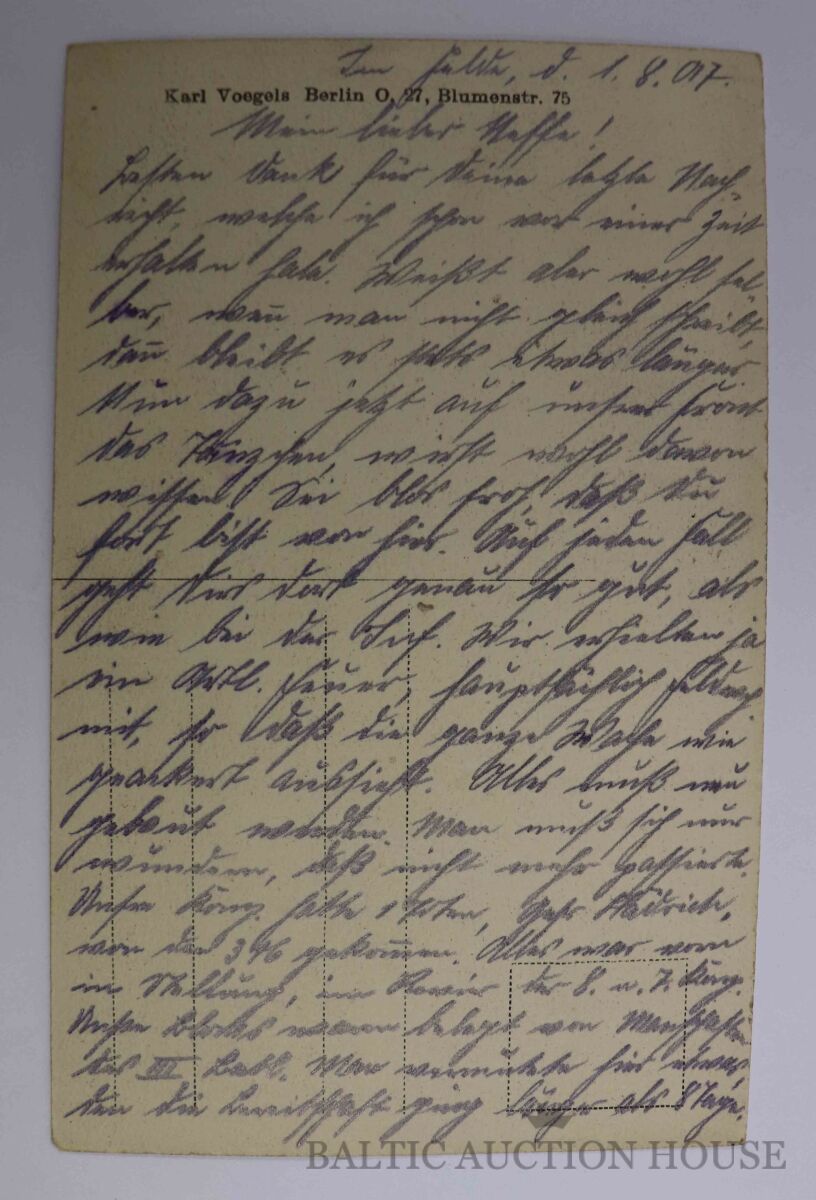 Im Felde, d. 1. 8. 017.
Karl Voegels Berlin O, 27, Blumenstr. 75
Mein lieber Neffe!
Besten Dank für Deine letzte Nach-
richt, welche ich schon vor einer Zeit
erhalten habe. Weißt aber wohl sel
ber, wenn man nicht gleich schreibt,
dann bleibt es stets etwas länger
Nun dazu jetzt auf unsrer Front
das Tänzchen, wirst wohl davon
wissen. Sei blos froh, daß Du
fort bist von hier. Auf jeden Fall
geht Dirs dort genau so gut, als
wie bei der Inf. Wir erhielten ja
ein Artl. Feuer, hauptsächlich
mit, so daß die ganze wie
geackert aussieht. Alles muß neu
gebaut werden. Man muß sich nur
wundern, daß nicht mehr passierte.
Unsre Komp. hatte 1 Toten, Gefr.
von den 346 gekommen. Alles war vorn
in Stellung, im Revier der 8. u. 7. Komp.
Unsre Blocks waren belegt von Mannschaften
des III Batl. Man vermutete hier etwas,
den die Bereitschaft ging länger als 8 Tage.
BALTIC AUCTION HOUSE